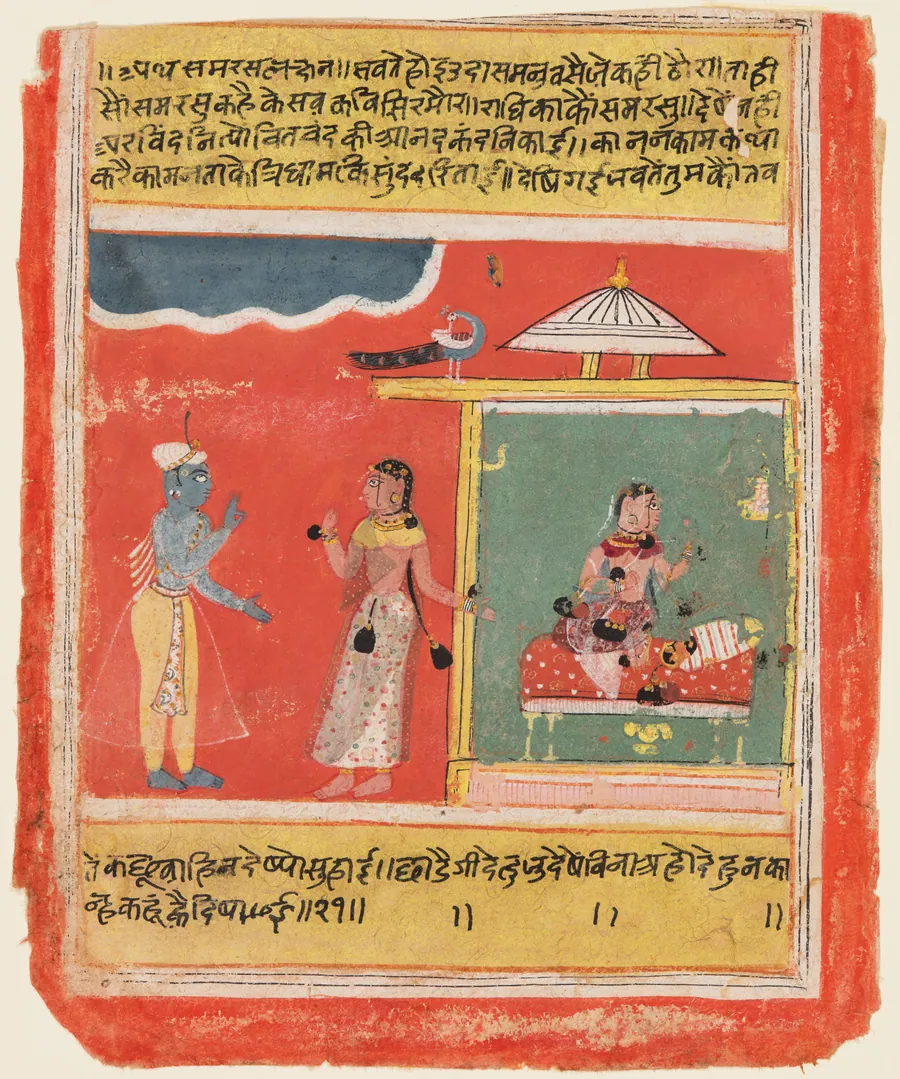 ॥अथ समरसलछन॥सवते होइ उदास मनु वसै जे कही ठौर॥ताही
सौं समरसु कहै केसव कवि सिरमौर॥राधिका कौ समरसु॥देषै
अरविंदनि त्यो चितवे आनदकंद निकाई॥काननँ काम कथा
करै काम न ताके त्रिधाम कि सुंदरताई॥देषि गई जवतें तुमकौं तव
तें कछू वाहि न देष्यो सुहाई॥छाडैगी देह जु देषे विना अहो देहु न का
न्ह कहूं कै दिषाई॥२१॥ ॥ ॥ ॥